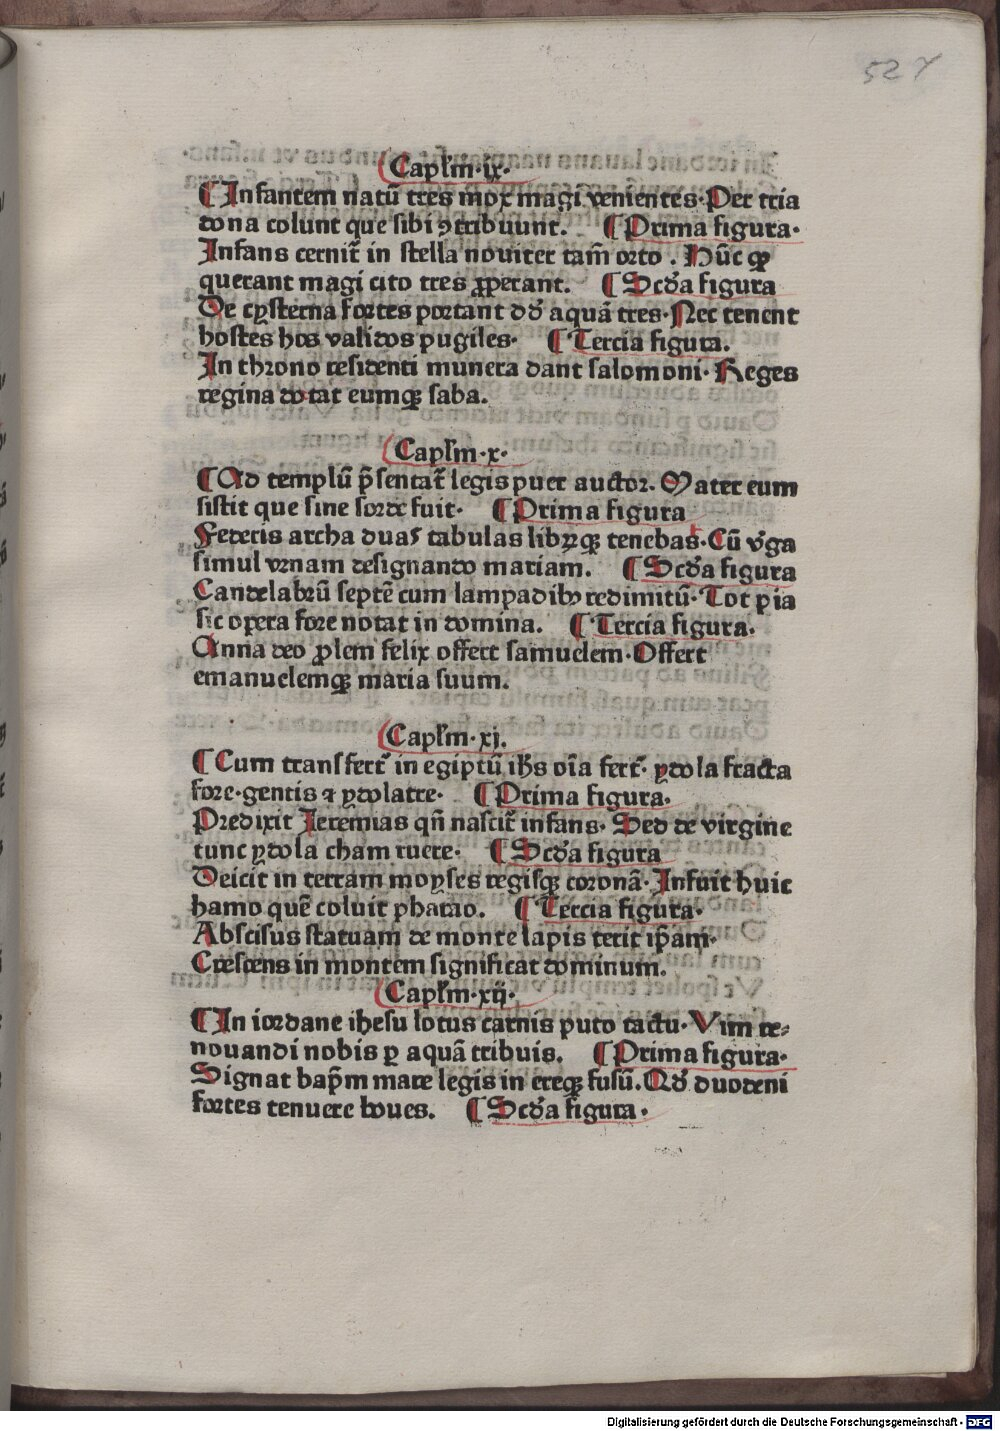 527
Capl'm·ix·
¶ Infantem natū tres mox magi venientes· Per tria
dona colunt que sibi ꝯtribuunt. ¶ Prima figura·
Infans cernit᷑ in stella noviter tam̄ orto . Nūc ꝙ
querant magi cito tres ꝓperant. ¶ Scd'a figura
De cysterna fortes portant dd' aquā tres· Nec tenent
hostes hos validos pugiles· ¶ Tercia figura.
In throno residenti munera dant salomoni· Reges
regina dotat eumqꝫ saba.
Capl'm·x·
¶ Ad templū p̄sentat᷑ legis puer auctor. Mater eum
sistit que sine sorde fuit· ¶ Prima figura
Federis archa duas tabulas libꝝqꝫ tenebas· Cū v'ga
simul vrnam designando mariam. ¶ Scd'a figura
Candelabrū septē cum lampadibꝫ redimitū· Tot pia
sic opera fore notat in domina. ¶ Tercia figura.
Anna deo ꝓlem felix offert samuelem· Offert
emanuelemqꝫ maria suum.
Capl'm·xj.
¶ Cum transfert᷑ in egiptū ih̄s oīa fert᷑· ydola fracta
fore· gentis ⁊ ydolatre· ¶ Prima figura·
Predixit Jeremias qn̄ nascit᷑ infans· Sed de virgine
tunc ydola cham ruere· ¶ Scd'a figura
Deicit in terram moyses regisqꝫ coronā· Infuit huic
hamo quē coluit pharao. ¶ Tercia figura·
Abscisus statuam de monte lapis terit ip̄am·
Crescens in montem significat dominum.
Capl'm·xij·
¶ In iordane ihesu lotus carnis puto tactu· Vim re⸗
novandi nobis ꝑ aquā tribuis. ¶ Prima figura·
Signat bap̄m mare legis in ereqꝫ fusū. Qd' duodeni
fortes tenuere boues. ¶ Scd'a figura·
Digitalisierung gefördert durch die Deutsche Forschungsgemeinschaft - DFG